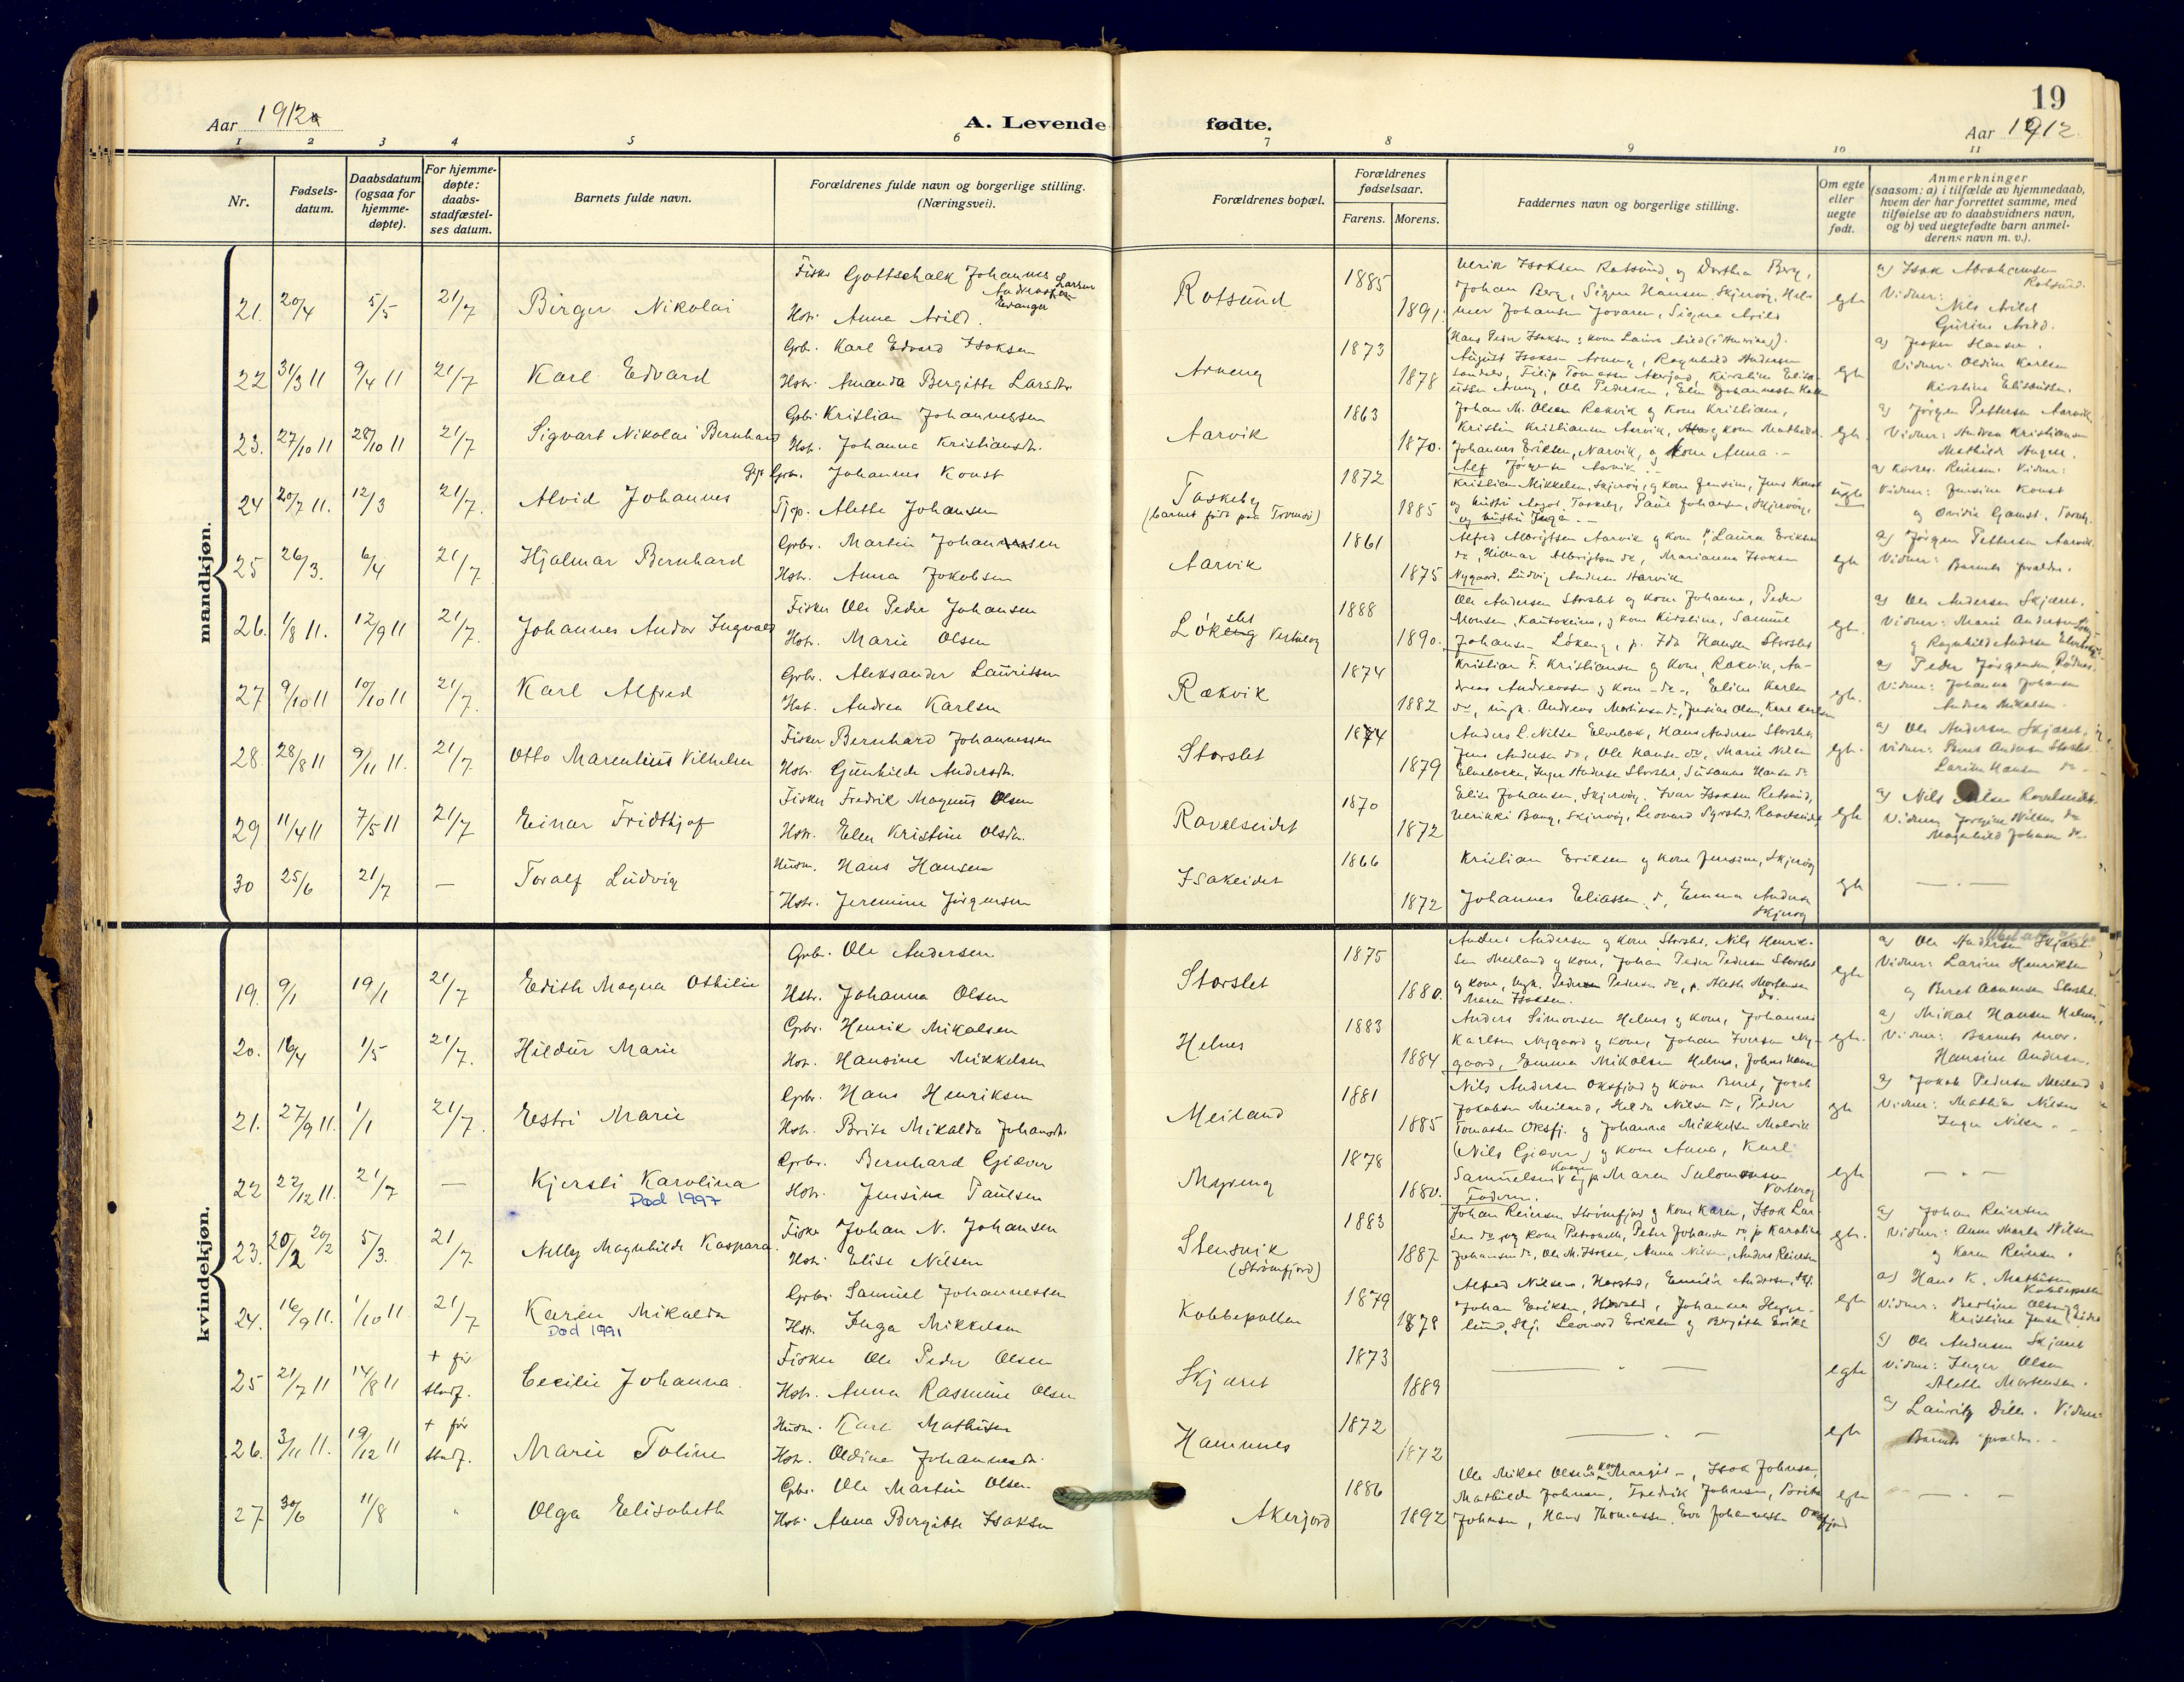 19
Aar 1912
A. Levende fødte.
Aar 1912.
1 2 3 4 5 6 7 8 9 10 11
Nr.
Fødsels-
datum.
Daabsdatum
(ogsaa for
hjemme-
døpte).
For hjemme-
døpte:
daabs-
stadfæstel-
ses datum.
Barnets fulde navn.
Forældrenes fulde navn og borgerlige stilling.
(Næringsvei).
Forældrenes bopæl.
Forældrenes
fødselsaar.
Farens. Morens.
Faddernes navn og borgerlige stilling.
Om egte
eller
uegte
født.
Anmerkninger
(saasom: a) i tilfælde av hjemmedaab,
hvem der har forrettet samme, med
tilføielse av to daabsvidners navn,
og b) ved uegtefødte barn anmel-
derens navn m. v.).
mandkjøn.
21. 20/4 5/5 21/7 Birger Nikolai
Fisker Gottschalk Johannes
Hstr. Anna Arild.
Rotsund 1885 1891.
Ulrik Isaksen Rotsund og Dorthea Berg,
Johan Berg, Signe Hansen, Skjervøy, Hel-
mer Johansen Jovaren, Signe Arild
egte
a) Isak Abrahamsen
Rotsund.
Vidner:
Nils Arild
Gurine Arild.
22 31/3 11 9/4 11 21/7 Karl Edvard
Grbr. Karl Edvard Isaksen
Hstr. Amanda Bergitte Larsdtr.
Arneng 1873 1878
egte
a) Jesper Hansen.
Vidner: Oldine Karlsen
Kirstine Eliseussen.
23. 27/10 11 28/10 11 21/7 Sigvart Nikolai Bernhard
Grbr. Kristian Johannessen
Hstr. Johanna Kristiansdtr.
Aarvik 1863 1870.
Johan M. Olsen Rakvik og kone Kristiane,
Kristin Kristiansen Aarvik, og kone Mathilde.
Johannes Eriksen, Narvik, og kone Anna.-
Alf Jørgensen Aarvik.
egte.
a) Jørgen Pettersen Aarvik
Vidner: Andrea Kristiansen
Mathilde Angell.
24 20/7 11. 12/3 21/7. Alvid Johannes
Grbr. Johannes Konst
Tjp. Alette Johansen
Taskeby
(barnet født paa Tromsø)
1872 1885
Kristian Mikkelsen, Skjervøy, og kone Jensine, Jens Konst
og hustru Aagot, Taskeby, Paul Johansen, Skjervøy,
og hustru Inga.-
uegte
Vidner: Jensine Konst
og Ovidia Gamst.
25 26/3. 6/4 21/7 Hjalmar Bernhard
Grbr. Martin Johansen
Hstr. Anna Jakobsen
Aarvik 1861 1875
Nygaard, Ludvig Andersen Aarvik
egte
a) Jørgen Pettersen Aarvik.
Vidner: Barnets forældre.
26. 1/8 11. 12/9 11 21/7. Johannes Andor Ingvald
Fisker Ole Peder Johansen
Hstr. Marie Olsen
Løkslet
1888 1890.
Ole Andersen Storslet og kone Johanne, Peder
Monsen, Kautokeino, og kone Kirstine, Samuel
Johansen Løkeng, p. Ida Hansen Storslet
egte.
a) Ole Andersen Skjæret.
Vidner: Marie Andersen
og Ragnhild Andersen
27 9/10 11 10/10 11 21/7. Karl Alfred
Grbr. Aleksander Lauritsen
Hstr. Andrea Karlsen
Rakvik 1874 1882
Kristian F. Kristiansen og kone, Rakvik, An-
dreas Andreassen og kone - do -, Eline Karlsen
do, ungk. Andreas Mortensen do, Jensine Olsen, Karl Karlsen
egte.
a) Peder Jørgensen, Rødnes.
Vidner: Johanna Johansen
Andrea Mikalsen.
28. 28/8 11 9/11 11. 21/7. Otto Marentius Vilhelm
Fisker Bernhard Johannessen
Hstr. Gunhilde Andersdtr.
Storslet 1874 1879
Anders L. Nilsen Elvebak, Hans Andersen Storslet,
Jens Andersen do, Ole Hansen do, Marie Nilsen
Elvebakken, Inger Andersen Storslet, Susanna Hansen do
egte.
a) Ole Andersen Skjæret,
Vidner: Beret Andersen Storslet
Larine Hansen do -
29 11/4 11 7/5 11 21/7 Einar Fridthjof
Fisker Fredrik Magnus Olsen
Hstr. Elen Kristine Olsdtr.
Ravelseidet 1870 1872
Elise Johansen, Skjervøy, Ivar Isaksen Rotsund,
Ulrikke Bang, Skjervøy, Leonard
egte
a) Nils Nilsen Ravelseidet.
Vidner: Jørgine Nilsen do
Magnhild Johansen do
30 25/6 21/7 — Toralf Ludvig
Husm. Hans Hansen
Hstr. Jeremine Jørgensen
Isakeidet 1866 1872
Kristian Eriksen og kone Jensine, Skjervøy
Johannes Eliassen, do, Emma Andersen
Skjervøy
egte — . —
kvindekjøn.
19. 9/1 19/1 21/7 Edith Magna Othilie
Grbr. Ole Andersen
Hstr. Johanna Olsen
Storslet 1875 1880.
Anders Andersen og kone Storslet, Nils Henrik-
sen Meiland og kone, Johan Peder Pedersen Storslet
og kone, ungk. Peder Pedersen do, p. Aleth Mortensen
Maren Isaksen. do.
egte
a) Ole Andersen Skjæret
Vidner: Larine Henriksen
og Beret Storslet.
20. 16/4 1/5 21/7. Hildur Marie
Grbr. Henrik Mikalsen
Hstr. Hansine Mikkelsen
Helnes 1883 1884
Anders Simonsen Helnes og kone, Johannes
Karlsen Nygaard og kone, Johan Iversen Ny-
gaard, Emma Mikalsen Helnes, Johan Hansen
egte.
a) Mikal Hansen Helnes,
Vidner: Barnets mor.
Hansine Andersen.
21. 27/9 11. 1/1 21/7. Estri Marie
Grbr. Hans Henriksen
Hstr. Brita Mikalda Johansdtr.
Meiland 1881 1885
Nils Andersen Oksfjord og kone Beret, Jakob
Jakobsen Meiland, Helda Nilsen do, Peder
Tomassen Oksfj. og Johanna Mikkelsen Malvik
egte
a) Jakob Pedersen Meiland
Vidner: Mathias Nilsen
Inger Nilsen - -
22 22/12 11. 21/7 — Kjersti Karolina
Død 1997
Grbr. Bernhard Giæver
Hstr. Jensine Paulsen
Myreng 1878 1880.
(Nils Giæver) og kone Anna, Karl
Samuelsen og p. Maren Salomonsen
Faderen.
egte — " —
23. 20/2 20/2 5/3. 21/7. Nelly Magnhilde Kaspara.
Fisker Johan N. Johansen
Hstr. Elise Nilsen
Stensvik
(Strømfjord)
1883 1887.
Johan Reiersen Strømfjord og kone Karen, Isak Lar-
sen do, og kone Petronelle, Peter Johansen do, p. Karoline
Johansen do, Ole M. Isaksen, Anna Nilsen, Anders Reiersen
egte.
a) Johan Reiersen
Vidner: Anne Marth Nilsen
og Karen Reiersen.
24. 16/9 11. 1/10 11. 21/7 Karen Mikalda
Død 1991
Grbr. Samuel Johannessen
Hstr. Inga Mikkelsen
Kobbepollen 1879 1879
Alfred Nilsen, Harstad, Emilie Andersen, Skj.
Johan Eriksen, Harstad, Johanna Hegge-
lund, Skj. Leonard Eriksen og Bergitte Eriks
egte
a) Hans K. Mathisen
Kobbepollen
Vidner: Berline Olsen og
Kristine Jensen
25 21/7 11 14/8 11 + før stadf. Cecilie Johanna.
Fisker Ole Peder Olsen
Hstr. Anna Rasmine Olsen
Skjæret 1873 1889
— " —
egte
a) Ole Andersen Skjæret
Vidner: Inger Olsen
Alette Mortensen.
26. 3/11 11. 19/12 11 + før stadf. Marie Toline
Husm. Karl Mathisen
Hstr. Oldine Johannesdtr.
Hamnes 1872 1872
— " —
egte
a) Lauritz Dille. Vidner:
Barnets forældre.
27 30/6 11/8 " Olga Elisabeth
Grbr. Ole Martin Olsen
Hstr. Anna Bergitte Isaksen
Akerjord 1886 1892
Ole Mikal Olsen og kone Margit -, Isak Johnsen,
Mathilde Johnsen, Fredrik Johnsen, Brita
Johnsen, Hans Thomassen, Eva Johannessen Oksfjord
egte — " —